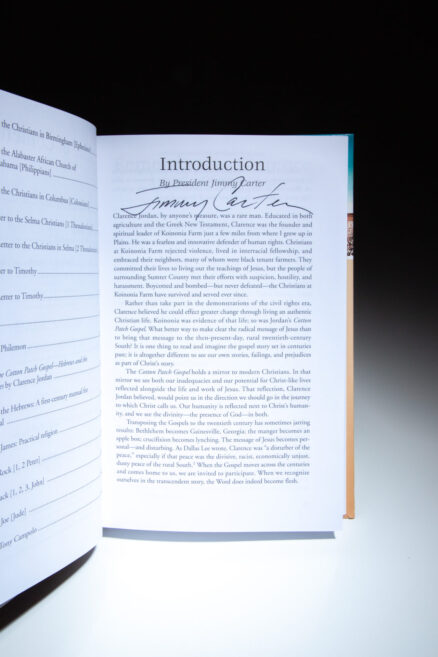 the Christians in Birmingham [Ephesians]
the Alabaster African Church of
abama [Philippians]
the Christians in Columbus [Colossians]
er to the Selma Christians [1 Thessalonians]
etter to the Christians in Selma [2 Thessalonians
er to Timothy
etter to Timothy
Philemon
Cotton Patch Gospel—Hebrews and the
es by Clarence Jordan
the Hebrews: A first-century manual for
James: Practical religion
Rock [1, 2 Peter]
ack [1, 2, 3, John]
Joe [Jude]
Tony Campolo
Introduction
By President Jimmy Carter
Jimmy Carter
Clarence Jordan, by anyone's measure, was a rare man. Educated in both
agriculture and the Greek New Testament, Clarence was the founder and
spiritual leader of Koinonia Farm just a few miles from where I grew up in
Plains. He was a fearless and innovative defender of human rights. Christians
at Koinonia Farm rejected violence, lived in interracial fellowship, and
embraced their neighbors, many of whom were black tenant farmers. They
committed their lives to living out the teachings of Jesus, but the people of
surrounding Sumter County met their efforts with suspicion, hostility, and
harassment. Boycotted and bombed—but never defeated—the Christians at
Koinonia Farm have survived and served ever since.
Rather than take part in the demonstrations of the civil rights era,
Clarence believed he could effect greater change through living an authentic
Christian life. Koinonia was evidence of that life; so was Jordan's Cotton
Patch Gospel. What better way to make clear the radical message of Jesus than
to bring that message to the then-present-day, rural twentieth-century
South? It is one thing to read and imagine the gospel story set in centuries
past; it is altogether different to see our own stories, failings, and prejudices
as part of Christ's story.
The Cotton Patch Gospel holds a mirror to modern Christians. In that
mirror we see both our inadequacies and our potential for Christ-like lives
reflected alongside the life and work of Jesus. That reflection, Clarence
Jordan believed, would point us in the direction we should go in the journey
to which Christ calls us. Our humanity is reflected next to Christ's human-
ity, and we see the divinity—the presence of God—in both.
Transposing the Gospels to the twentieth century has sometimes jarring
results: Bethlehem becomes Gainesville, Georgia; the manger becomes an
apple box; crucifixion becomes lynching. The message of Jesus becomes per-
sonal—and disturbing. As Dallas Lee wrote, Clarence was "a disturber of the
peace," especially if that peace was the divisive, racist, economically unjust,
dusty peace of the rural South.² When the Gospel moves across the centuries
and comes home to us, we are invited to participate. When we recognize
ourselves in the transcendent story, the Word does indeed become flesh.